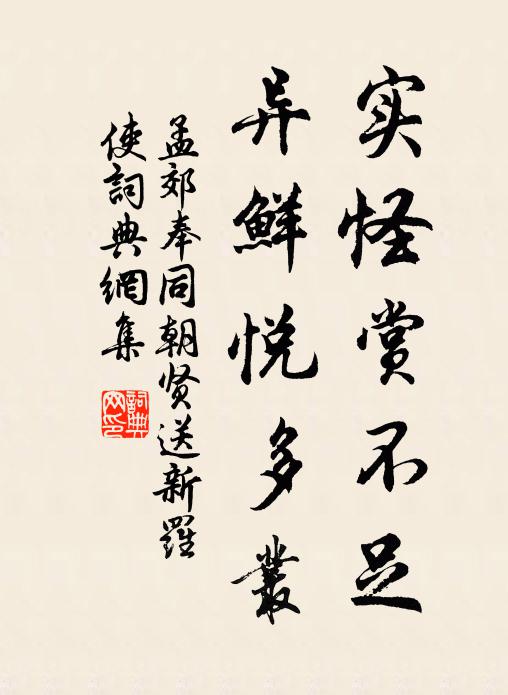 实怪赏不足
异鲜悦多丛
孟郊奉同朝贤送新羅
使詞典網集
詞典
网印